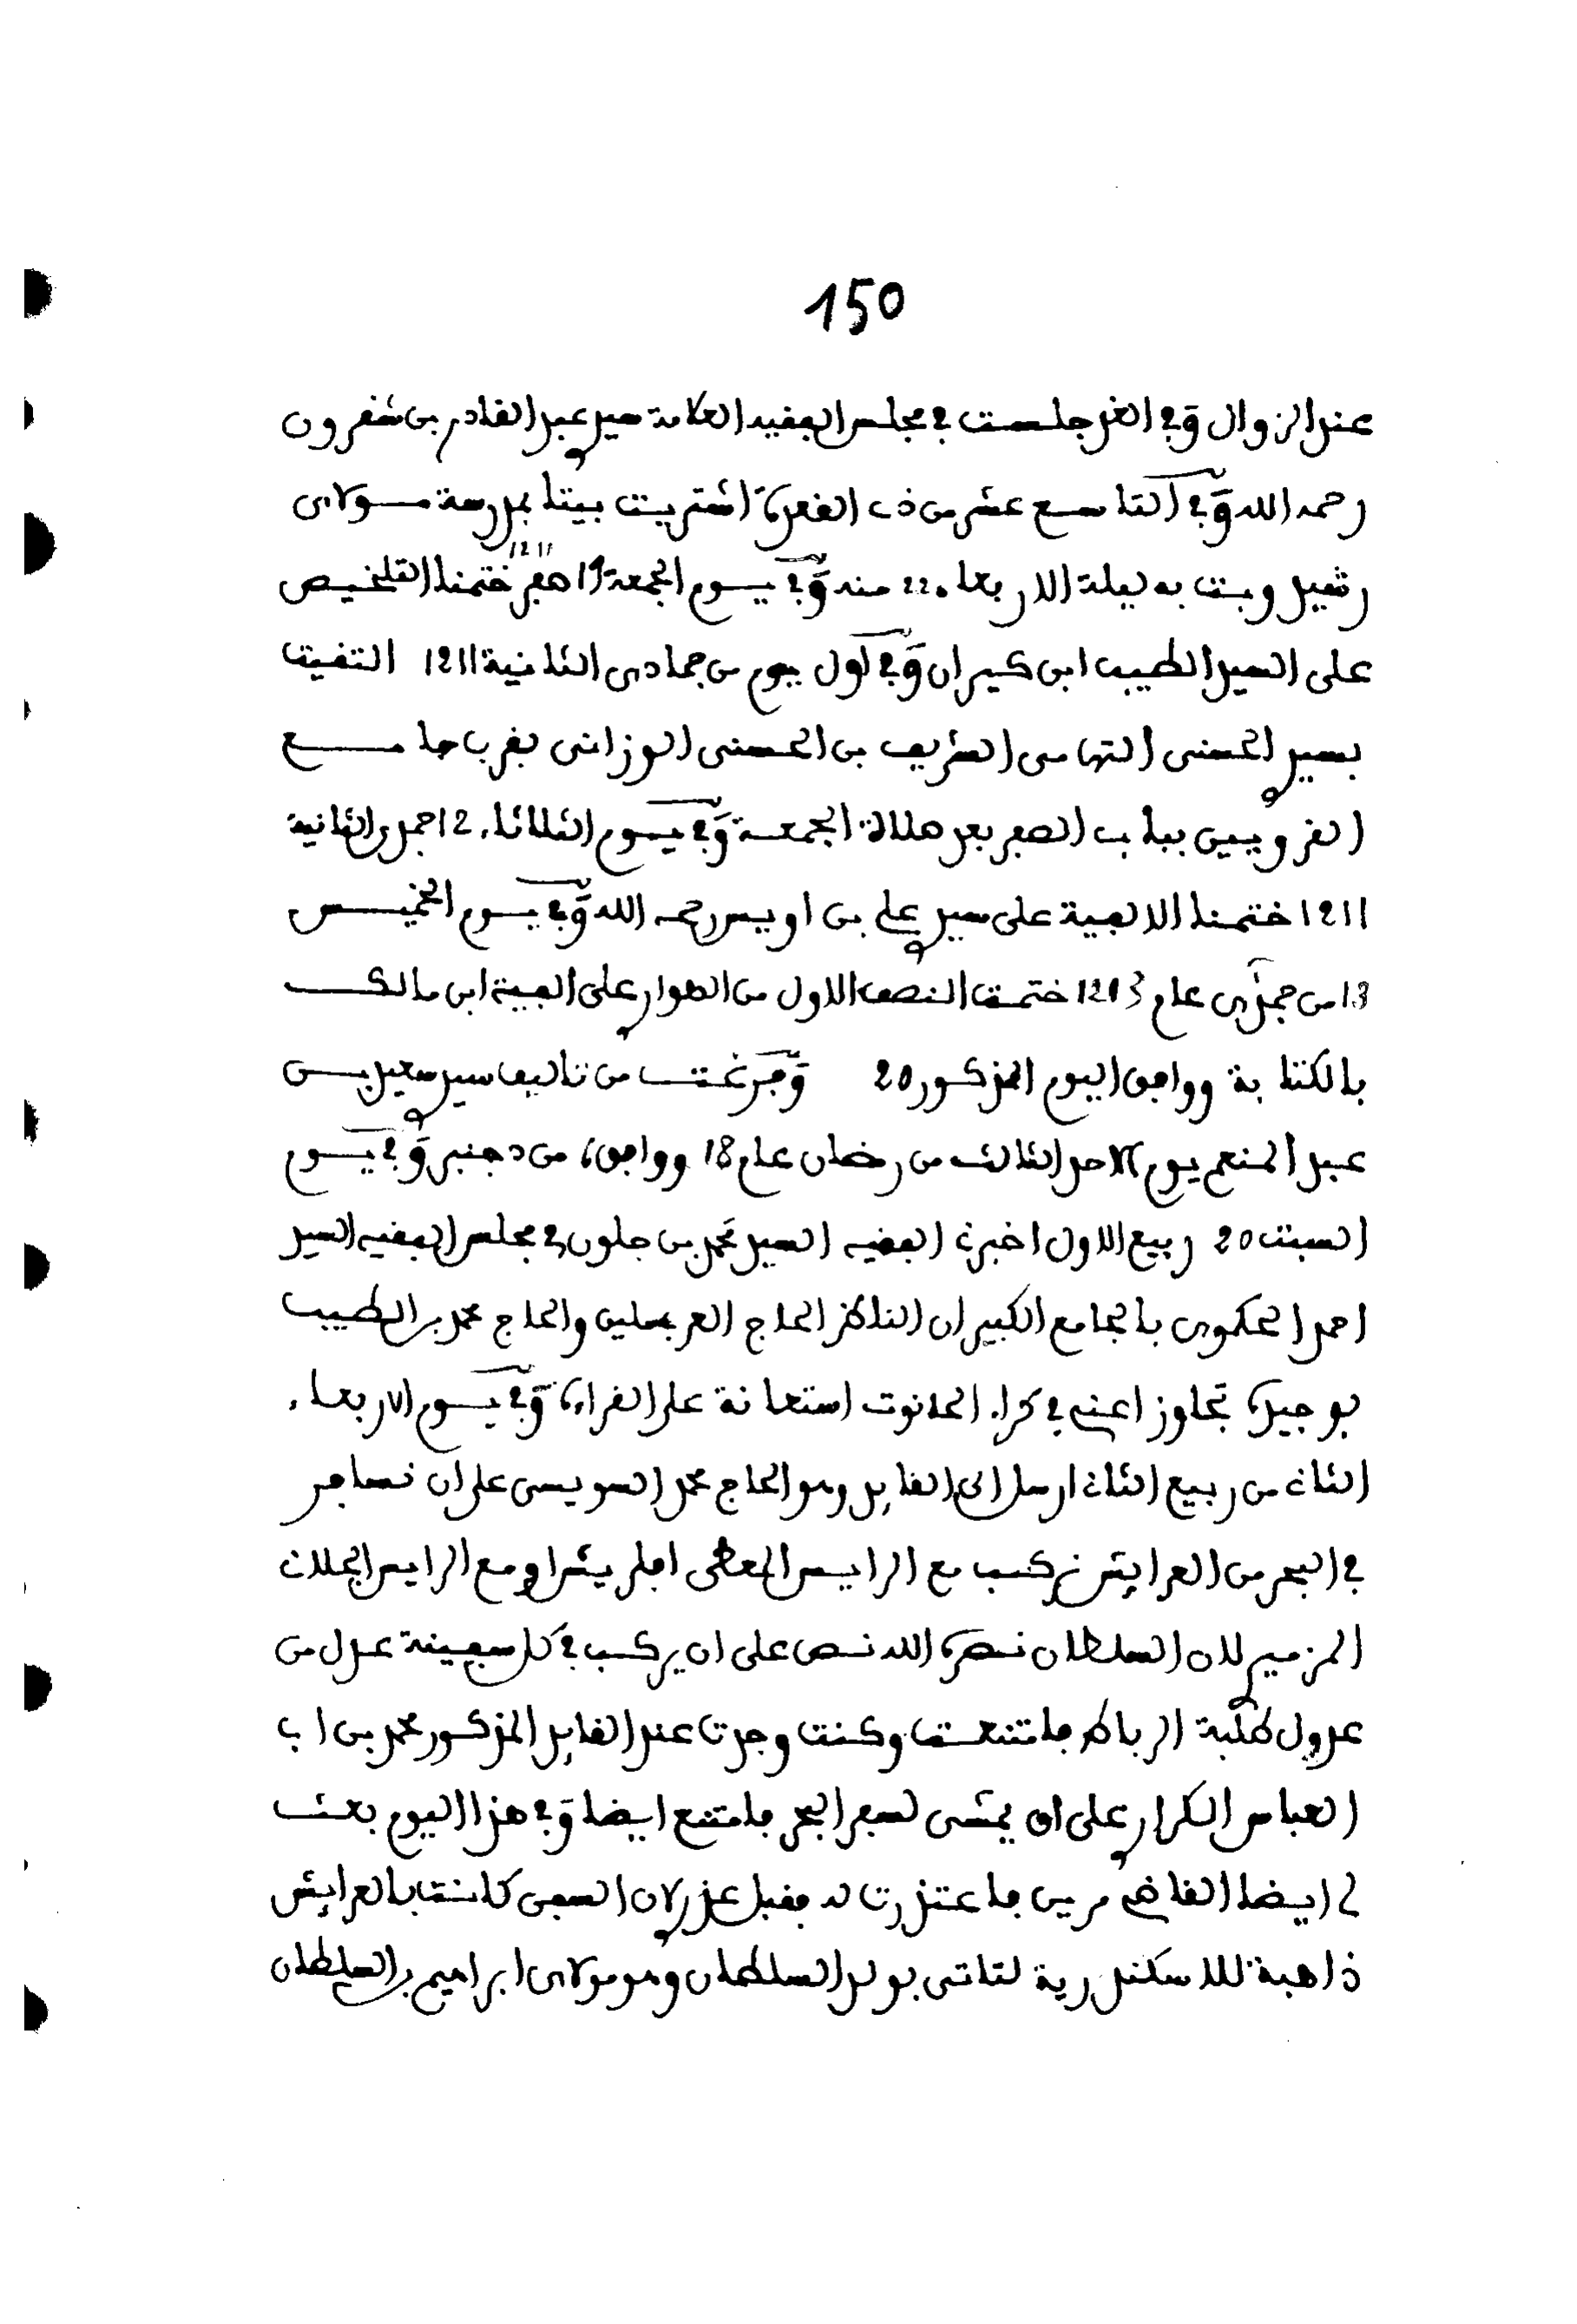 150
عند الزوال وفي الغد جلست في مجلس الفقيه العلامة سيد عبد القادر بن شقرون
رحمه الله وفي التاسع عشر من ذي القعدة اشتريت بيتا بمدرسة مولاي
رشيد وبت به ليلة الاربعاء 22 منه وفي يوم الجمعة 19 صفر 1211 ختمنا التلخيص
على السيد الطيب ابن كيران وفي اول يوم من جمادى الثانية 1211 التقيت
بسيد الحسني التهامي الشريف بن الحسني الوزاني بقرب جامع
القرويين بباب الصفر بعد صلاة الجمعة وفي يوم الثلاثاء 12 جمدى الثانية
1211 ختمنا الالفية على سيد علي بن اويس رحمه الله وفي يوم الخميس
13 من جمدى عام 1213 ختمت النصف الاول من الهواري على الفية ابن مالك
بالكتابة ووافق اليوم المذكور 20 وفرغت من تاليف سيد سعيد بن
عبد المنعم يوم الاحد الثالث من رمضان عام 18 ووافق من دجنبر وفي يوم
السبت 20 ربيع الاول اخبرني الفقيه السيد محمد بن جلون في مجلس الفقيه السيد
احمد الحكموي بالجامع الكبير ان الناظر الحاج العربي معلين والحاج محمد بن الطيب
بوجيدة تجاوزا عني في كراء الحانوت استعانة على القراءة وفي يوم الاربعاء
الثاني من ربيع الثاني ارسل الي القايد وهو الحاج محمد السويسي على ان نسافر
في البحر من العرايش نركب مع الرايس المعطى افلريش او مع الرايس الجلاني
المزميري لان السلطان نصره الله نص على ان يركب في كل سفينة عدل من
عدول طلبة الرباط فامتنعت وكنت وجدت عند القايد المذكور محمد بن ابي
العباس الكراري على ان يمشي لسفر البحر فامتنع ايضا وفي هذا اليوم بعث
لي ايضا القاضي مرين فاعتذرت له فقبل عذري لان السفن كانت بالعرايش
ذاهبة للاسكندرية لتاتي بولد السلطان وهو مولاي ابراهيم بن السلطان